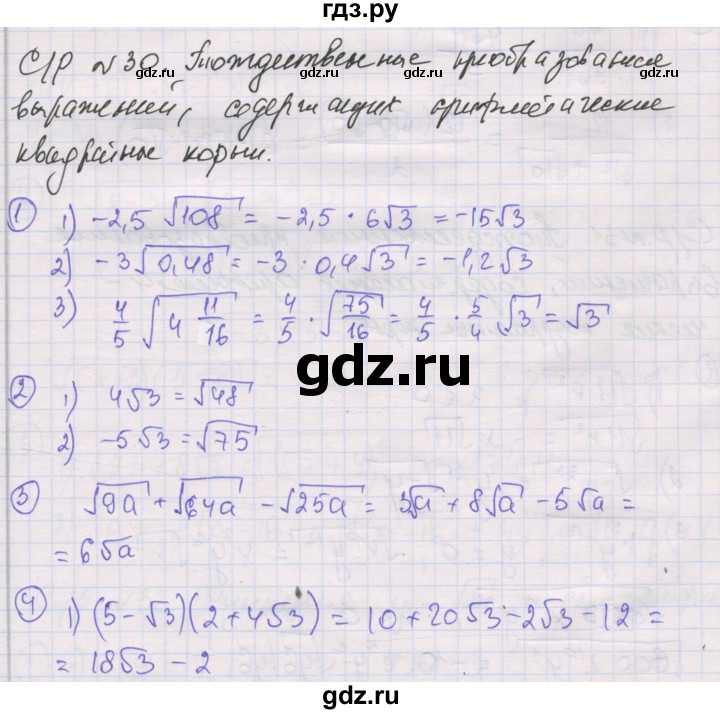 гдз.ру
С/Р №30 Тождественные преобразования
выражений, содержащих арифметические
квадратные корни.
1 1) -2,5 √108 = -2,5 · 6√3 = -15√3
2) -3√0,48 = -3 · 0,4√3 = -1,2√3
3) 4/5 √(4 11/16) = 4/5 · √(75/16) = 4/5 · 5/4 √3 = √3
gdz.ru
2 1) 4√3 = √48
2) -5√3 = √75
3 √9a + √64a - √25a = 3√a + 8√a - 5√a =
= 6√a
4 1) (5 - √3)(2 + 4√3) = 10 + 20√3 - 2√3 - 12 =
= 18√3 - 2
gdz.ru